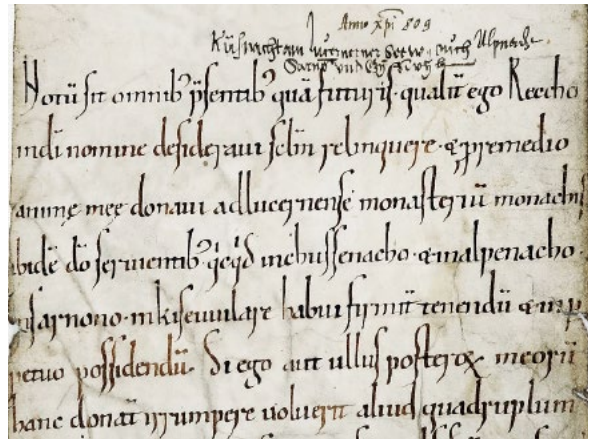 Anno xpi 809
Küssnacht am lucerner Seew. ouch Alpnacht.
Notū sit omnibꝰ p̄sentibꝰ quā futuris. qualit̄ ego Recho
indi nomine desideraui sc̄lm relinquere. & p̱ remedio
animę meę donaui ad lucernensē monasteriū monachis
ibidē dō seruientibꝰ q̇cq̇d in chussenacho. & in alpenacho.
in sarnono. in kisewilare habui firmit̄ tenendū & in p̱
petuo possidendū. Si ego aut ullus posteroꝝ meorū
hanc donat̄ irrumpere uoluerit aliud quadruplum